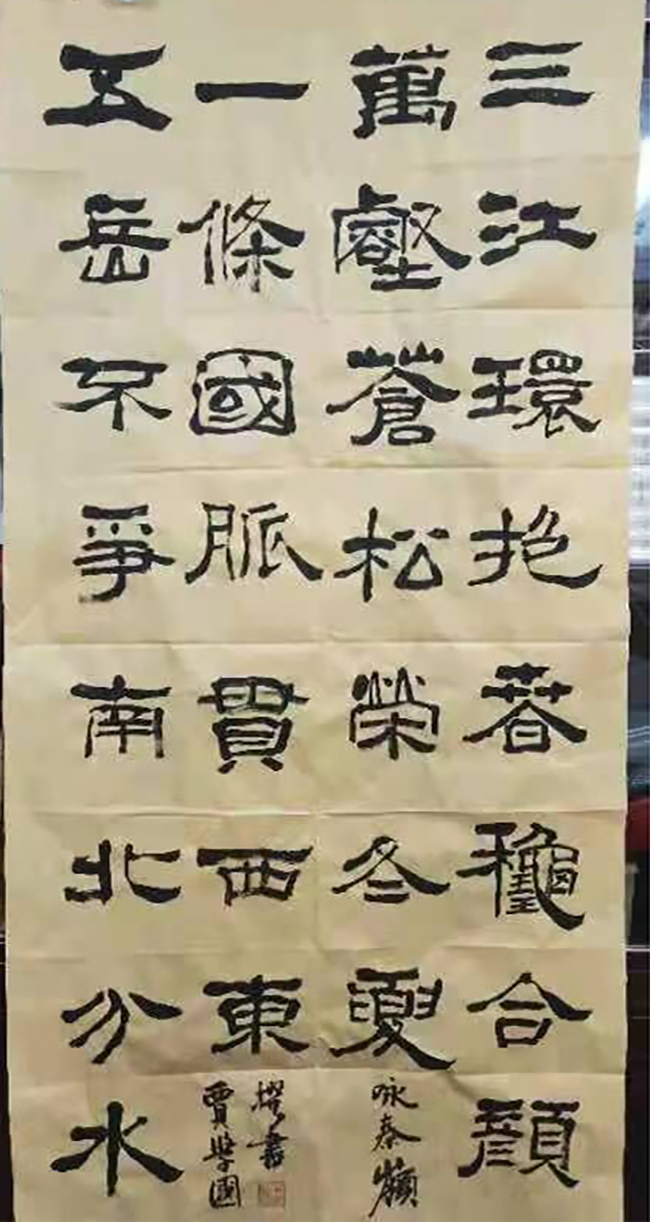 三江環抱春龝合顏
萬壑蒼松榮冬夏
咏秦嶺
一條國脈貫西東
撰書
賈學國
五岳不爭南北分水